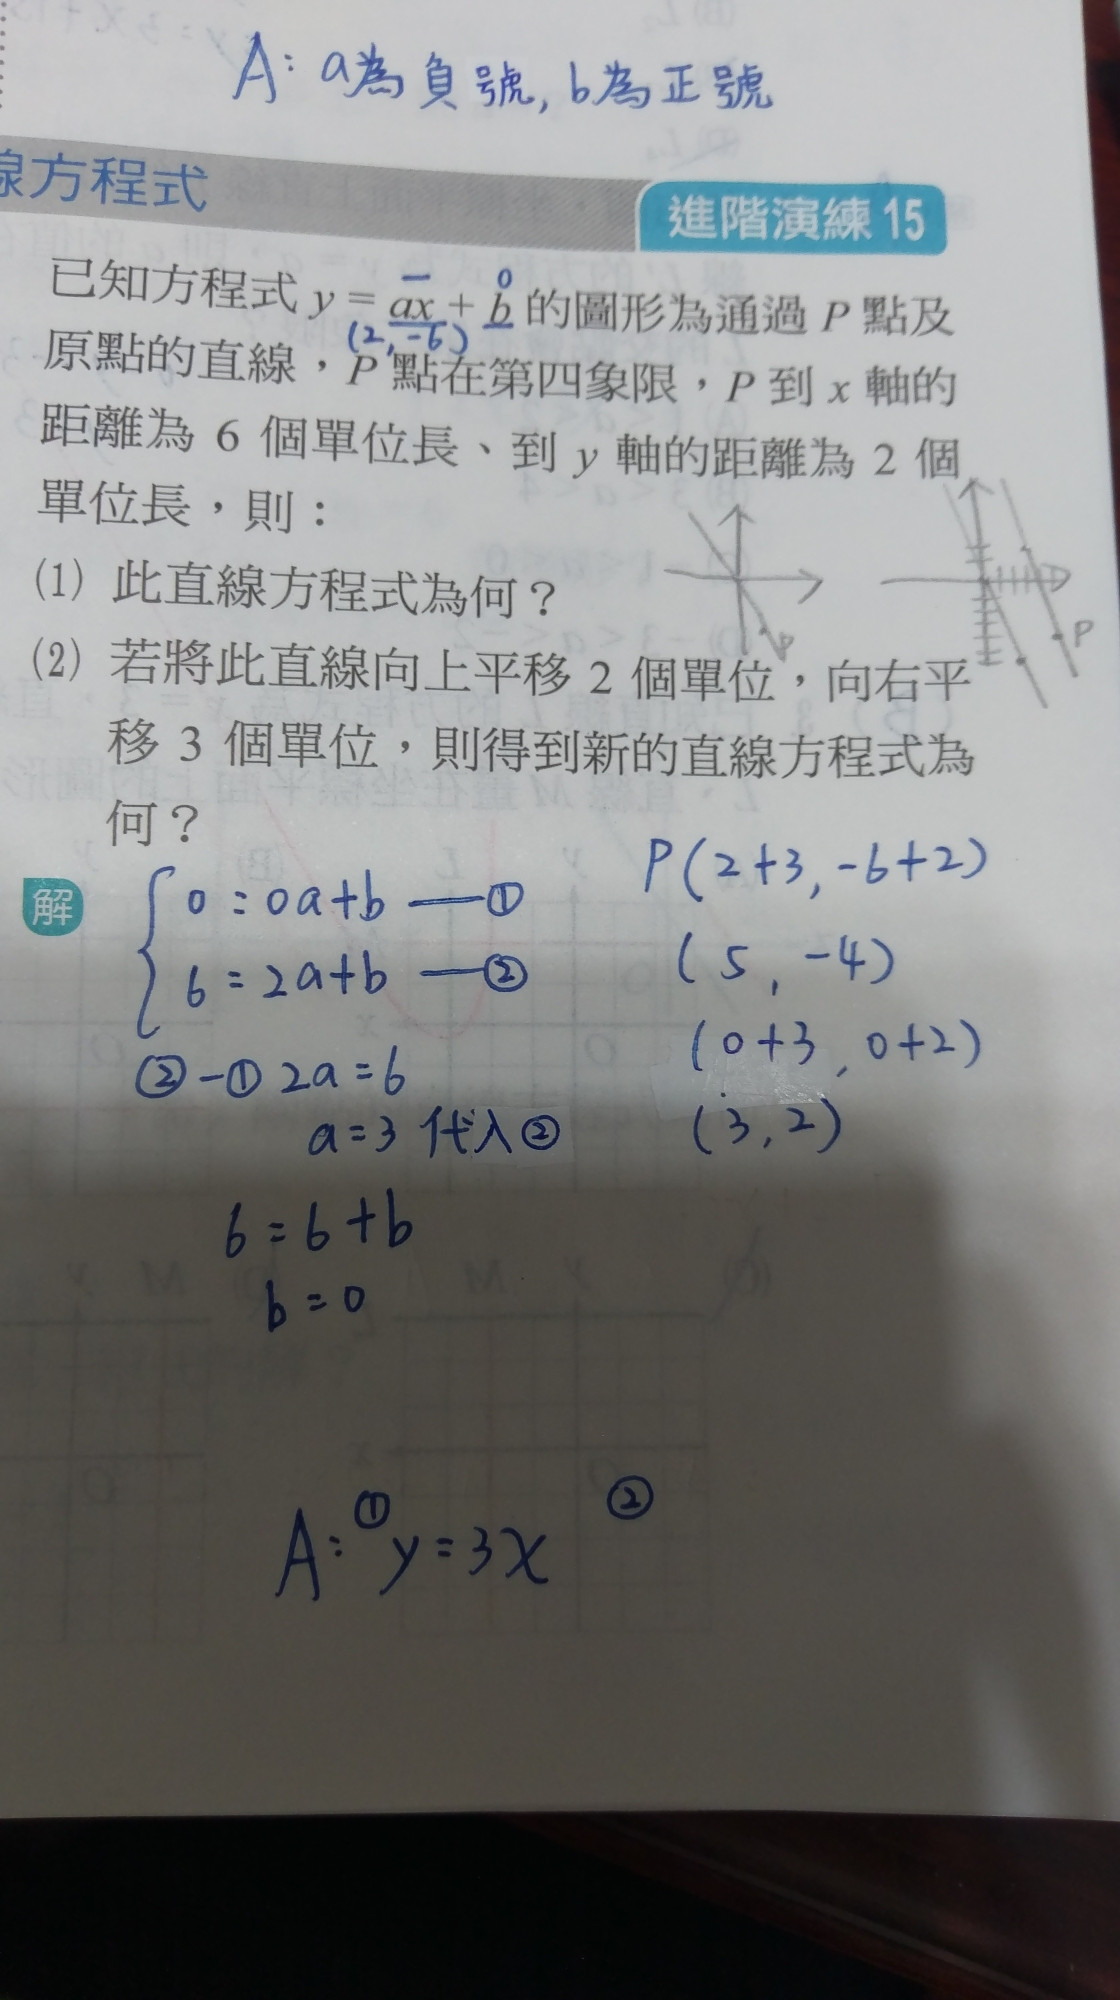 A: a為負號, b為正號
線方程式
進階演練 15
— 0
已知方程式 y = ax + b 的圖形為通過 P 點及
(2, -6)
原點的直線，P 點在第四象限，P 到 x 軸的
距離為 6 個單位長、到 y 軸的距離為 2 個
單位長，則：
(1) 此直線方程式為何？
P
P
(2) 若將此直線向上平移 2 個單位，向右平
移 3 個單位，則得到新的直線方程式為
何？
解
0 = 0a+b —①
6 = 2a+b —②
②-① 2a=6
a=3 代入②
6=6+b
b=0
P(2+3, -6+2)
(5, -4)
(0+3, 0+2)
(3, 2)
A: ① y=3x ②